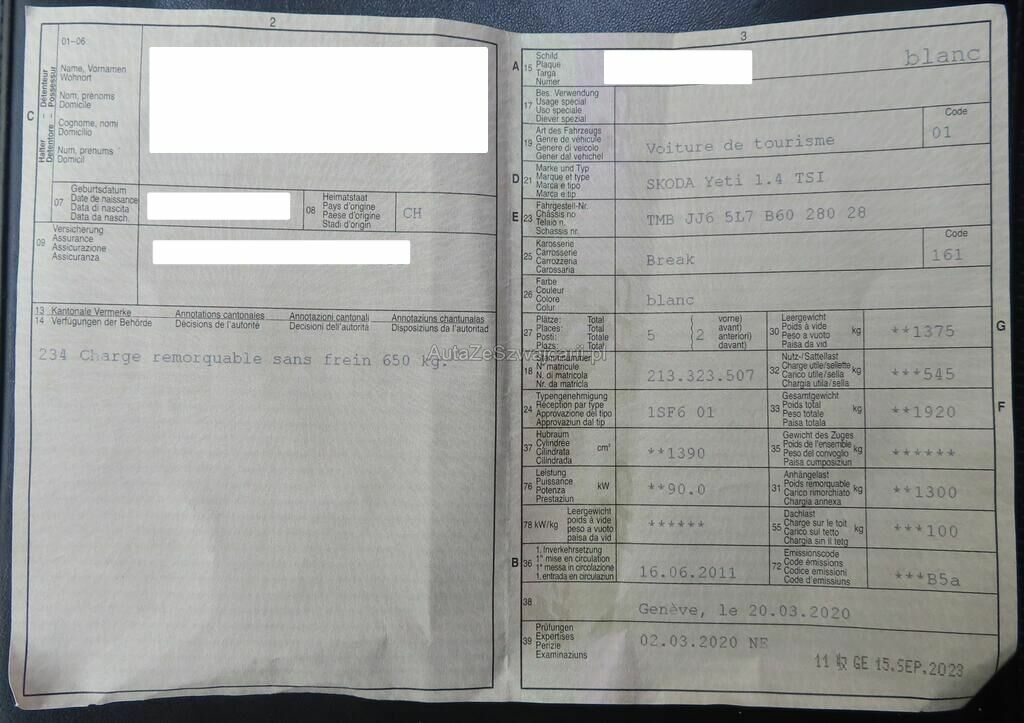 2
01-06
Halter - Détenteur
Detentore - Possessur
C
Name, Vornamen
Wohnort
Nom, prénoms
Domicile
Cognome, nomi
Domicilio
Num, prenums
Domicil
07
Geburtsdatum
Date de naissance
Data di nascita
Data da nasch.
08
Heimatstaat
Pays d'origine
Paese d'origine
Stadi d'origin
CH
09
Versicherung
Assurance
Assicurazione
Assicuranza
13 Kantonale Vermerke Annotations cantonales Annotazioni cantonali Annotaziuns chantunalas
14 Verfügungen der Behörde Décisions de l'autorité Decisioni dell'autorità Disposiziuns da l'autoritad
234 Charge remorquable sans frein 650 kg.
AutaZeSzwajcarii.pl
3
A 15
Schild
Plaque
Targa
Numer
blanc
17
Bes. Verwendung
Usage spécial
Uso speciale
Diever spezial
19
Art des Fahrzeugs
Genre de véhicule
Genere di veicolo
Gener dal vehichel
Voiture de tourisme
Code
01
D 21
Marke und Typ
Marque et type
Marca e tipo
Marca e tip
SKODA Yeti 1.4 TSI
E 23
Fahrgestell-Nr.
Châssis no
Telaio n.
Schassis nr.
TMB JJ6 5L7 B60 280 28
25
Karosserie
Carrosserie
Carrozzeria
Carossaria
Break
Code
161
26
Farbe
Couleur
Colore
Colur
blanc
27
Plätze: Total
Places: Total
Posti: Totale
Plazs: Total
5 { 2
vorne)
avant)
anteriori)
davant)
30
Leergewicht
Poids à vide
Peso a vuoto
Paisa da vid
kg
**1375
G
18
Stammnummer
N° matricule
N. di matricola
Nr. da matricla
213.323.507
32
Nutz-/Sattellast
Charge utile/sellette
Carico utile/sella
Chargia utila/sella
kg
***545
24
Typengenehmigung
Réception par type
Approvazione del tipo
Approvaziun dal tip
1SF6 01
33
Gesamtgewicht
Poids total
Peso totale
Paisa totala
kg
**1920
F
37
Hubraum
Cylindrée
Cilindrata
Cilindrada
cm³
**1390
35
Gewicht des Zuges
Poids de l'ensemble
Peso del convoglio
Paisa cumposiziun
kg
******
76
Leistung
Puissance
Potenza
Prestaziun
kW
**90.0
31
Anhängelast
Poids remorquable
Carico rimorchiato
Chargia annexa
kg
**1300
78 kW/kg
Leergewicht
poids à vide
peso a vuoto
paisa da vid
******
55
Dachlast
Charge sur le toit
Carico sul tetto
Chargia sin il tetg
kg
***100
B 36
1. Inverkehrsetzung
1re mise en circulation
1a messa in circolazione
1. entrada en circulaziun
16.06.2011
72
Emissionscode
Code émissions
Codice emissioni
Code d'emissiuns
***B5a
38
Genève, le 20.03.2020
39
Prüfungen
Expertises
Perizie
Examinaziuns
02.03.2020 NE
GE 15.SEP.2023